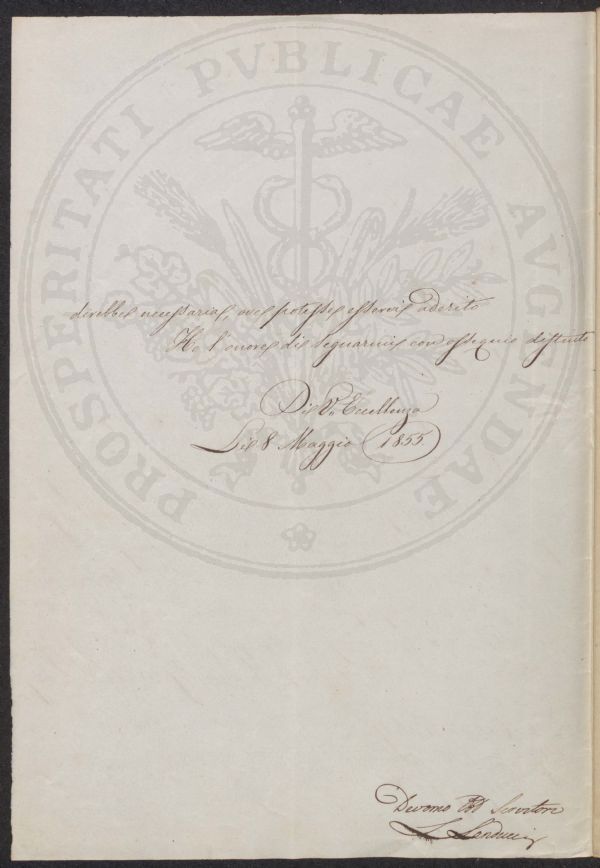 PROSPERITATI PVBLICAE AVGENDAE
direbbe necessaria, ove potesse esservi aderito
Ho l'onore di segnarmi con ossequio distinto
Di V. Eccellenza
Li 8 Maggio 1855
Devomo Obb Servitore
L. Landucci